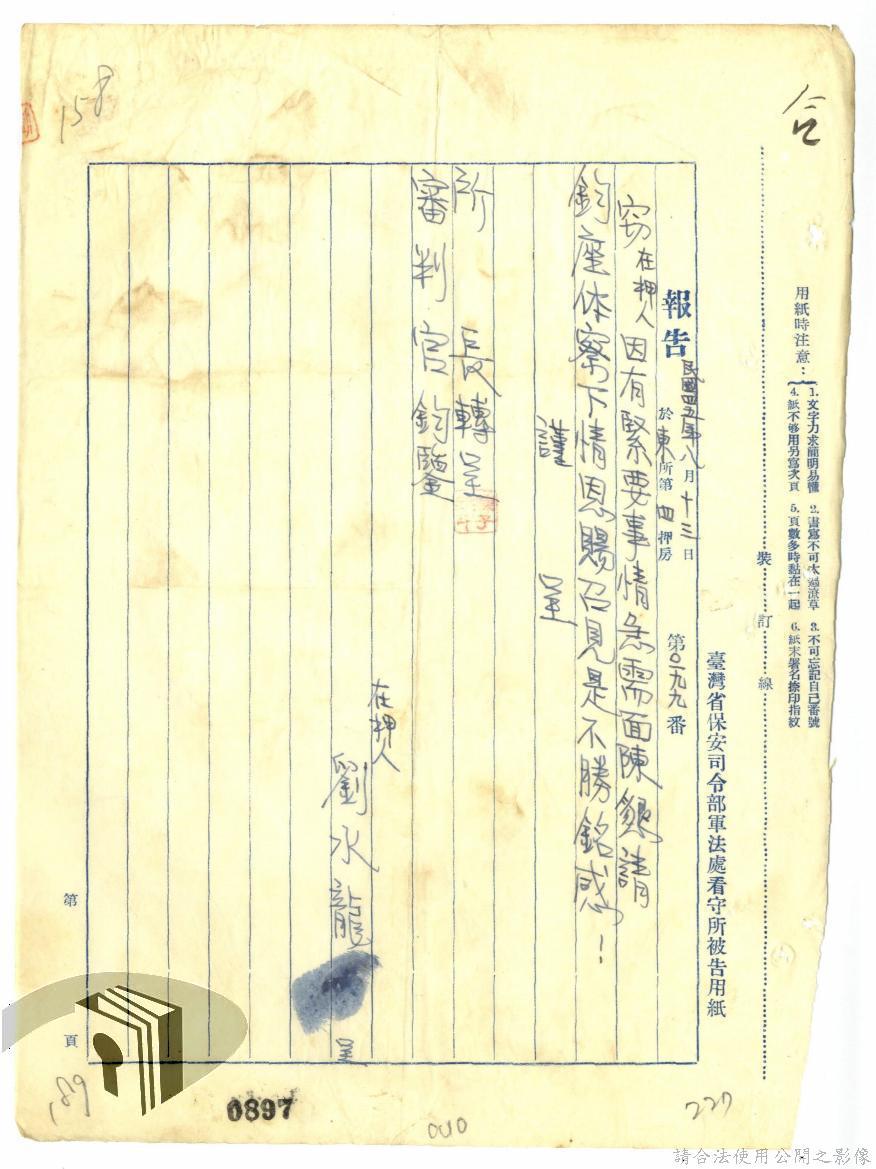 合
用紙時注意：
1. 文字力求簡明易懂
2. 書寫不可太過潦草
3. 不可忘記自己番號
4. 紙不够用另寫次頁
5. 頁數多時黏在一起
6. 紙末署名捺印指紋
裝訂線
臺灣省保安司令部軍法處看守所被告用紙
報告 民國四五年八月十三日 於東所第四押房 第0一九九番
窃在押人因有緊要事情急需面陳懇請
鈞座体察下情恩賜召見是不勝銘感！
謹呈
所長轉呈
審判官鈞鑒
在押人
劉水龍 呈
第 頁
158
189
0897
010
227
請合法使用公開之影像